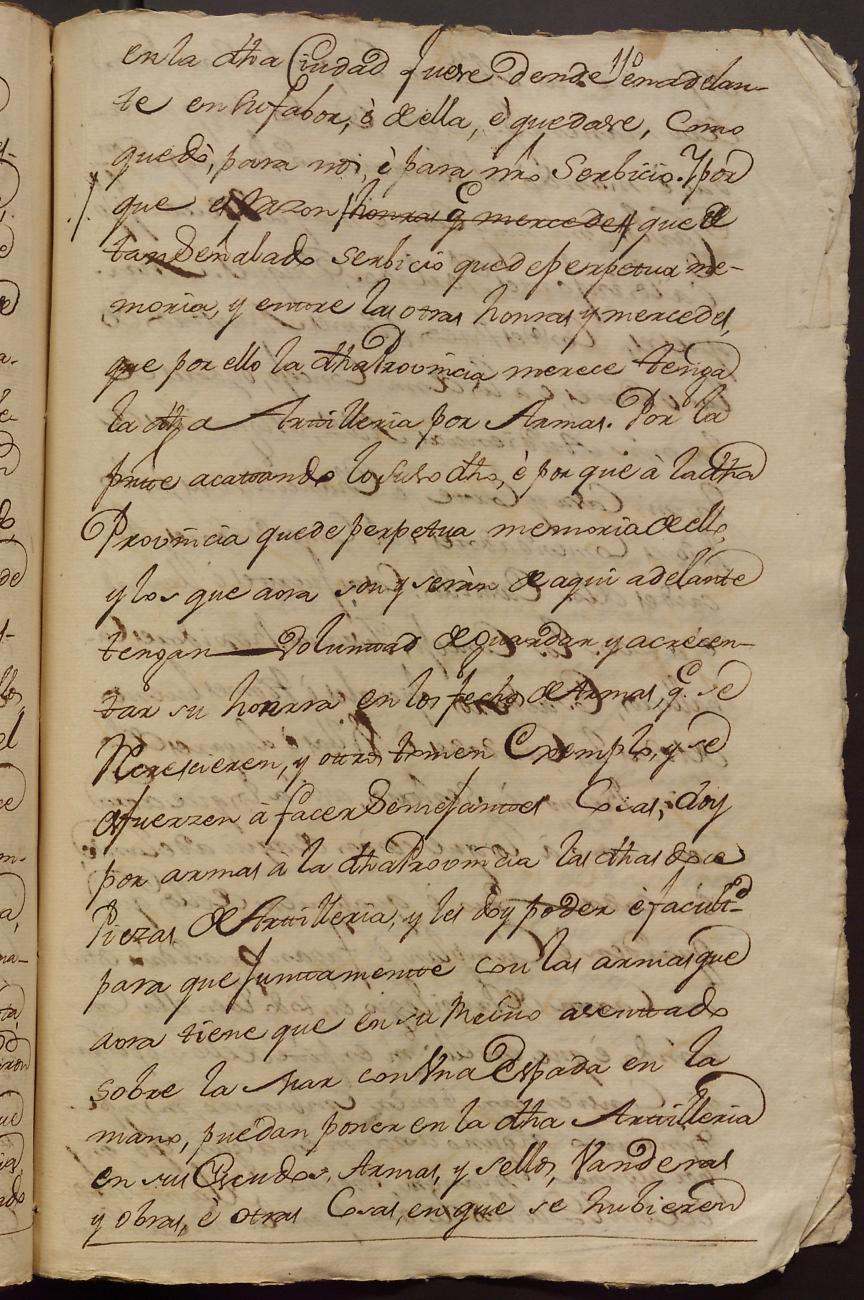 en la dha Ciudad fuese dende en adelan-
te en su fabor, è de ella, è quedase, como
quedò, para mi, è para mro Serbicio. Y por
que es razon honras q mercedes que de
tan Señalado serbicio quede perpetua me-
moria, y entre las otras honras y mercedes,
que por ello la dha Provincia merece tenga
la dha Artilleria por Armas. Por la
prnte acatando lo Suso dho, è por que à la dha
Provincia quede perpetua memoria de ello,
y los que aora son y seràn de aqui adelante
tengan voluntad de guardar y acrecen-
tar su honrra en los fechos de Armas, q. se
recrescieren, y otros tomen Exemplo, y se
esfuerzen à facer Semejantes Cosas, doy
por armas a la dha Provincia las dhas doce
Piezas de Artilleria, y les doy poder è facultd
para que Juntamente con las armas que
aora tiene que en su Reino asentado
sobre la Mar con Una Espada en la
mano, puedan poner en la dha Artilleria
en sus Escudos, Armas, y sellos, Vanderas
y obras, è otras Cosas, en que se hubieren